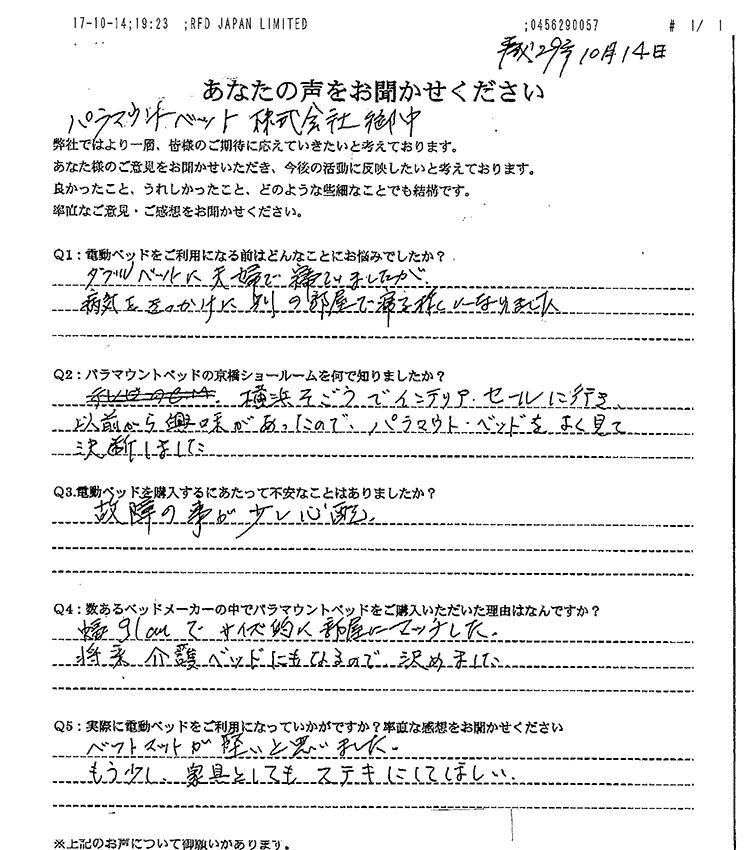 17-10-14;19:23 ;RFD JAPAN LIMITED ;0456290057 # 1/ 1
平成29年10月14日
あなたの声をお聞かせください
パラマウントベット株式会社御中
弊社ではより一層、皆様のご期待に応えていきたいと考えております。
あなた様のご意見をお聞かせいただき、今後の活動に反映したいと考えております。
良かったこと、うれしかったこと、どのような些細なことでも結構です。
率直なご意見・ご感想をお聞かせください。
Q1：電動ベッドをご利用になる前はどんなことにお悩みでしたか？
ダブルベットに夫婦で寝ていましたが、
病気をきっかけに別の部屋で寝る様になりました
Q2：パラマウントベッドの京橋ショールームを何で知りましたか？
横浜そごうでインテリア・セールに行き、
以前から興味があったので、パラマウト・ベッドをよく見て
決断しました
Q3.電動ベッドを購入するにあたって不安なことはありましたか？
故障の事が少し心配。
Q4：数あるベッドメーカーの中でパラマウントベッドをご購入いただいた理由はなんですか？
幅91cmでサイズ的に部屋にマッチした。
将来介護ベッドにもなるので、決めました
Q5：実際に電動ベッドをご利用になっていかがですか？率直な感想をお聞かせください
ベットマットが堅いと思いました。
もう少し、家具としてもステキにしてほしい。
※上記のお声について御願いがあります。